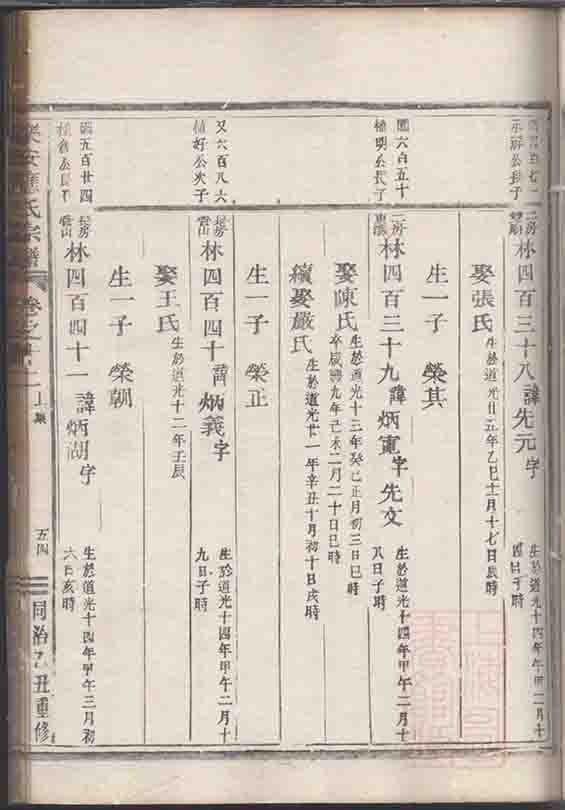 二房
林四百三十八 諱先元 字
生於道光十四年甲午二月十
四日子時
娶張氏
生於道光廿五年乙巳十一月十七日辰時
生一子 榮其
國六百五十
楨明公長子
二房
林四百三十九 諱炳憲 字 先文
生於道光十四年甲午二月十
八日子時
娶陳氏
生於道光十三年癸巳正月初三日巳時
卒咸豐九年己未二月二十日巳時
續娶嚴氏
生於道光廿一年辛丑十月初十日戌時
生一子 榮正
又六百八六
楨好公次子
長房
雲山
林四百四十 諱炳義 字
生於道光十四年甲午二月十
九日子時
娶王氏
生於道光十二年壬辰
生一子 榮朝
國五百廿四
長房
雲山
林四百四十一 諱炳湖 字
生於道光十四年甲午三月初
六日亥時
樂安 氏宗譜
卷之廿二
上集
五四
同治乙丑重修